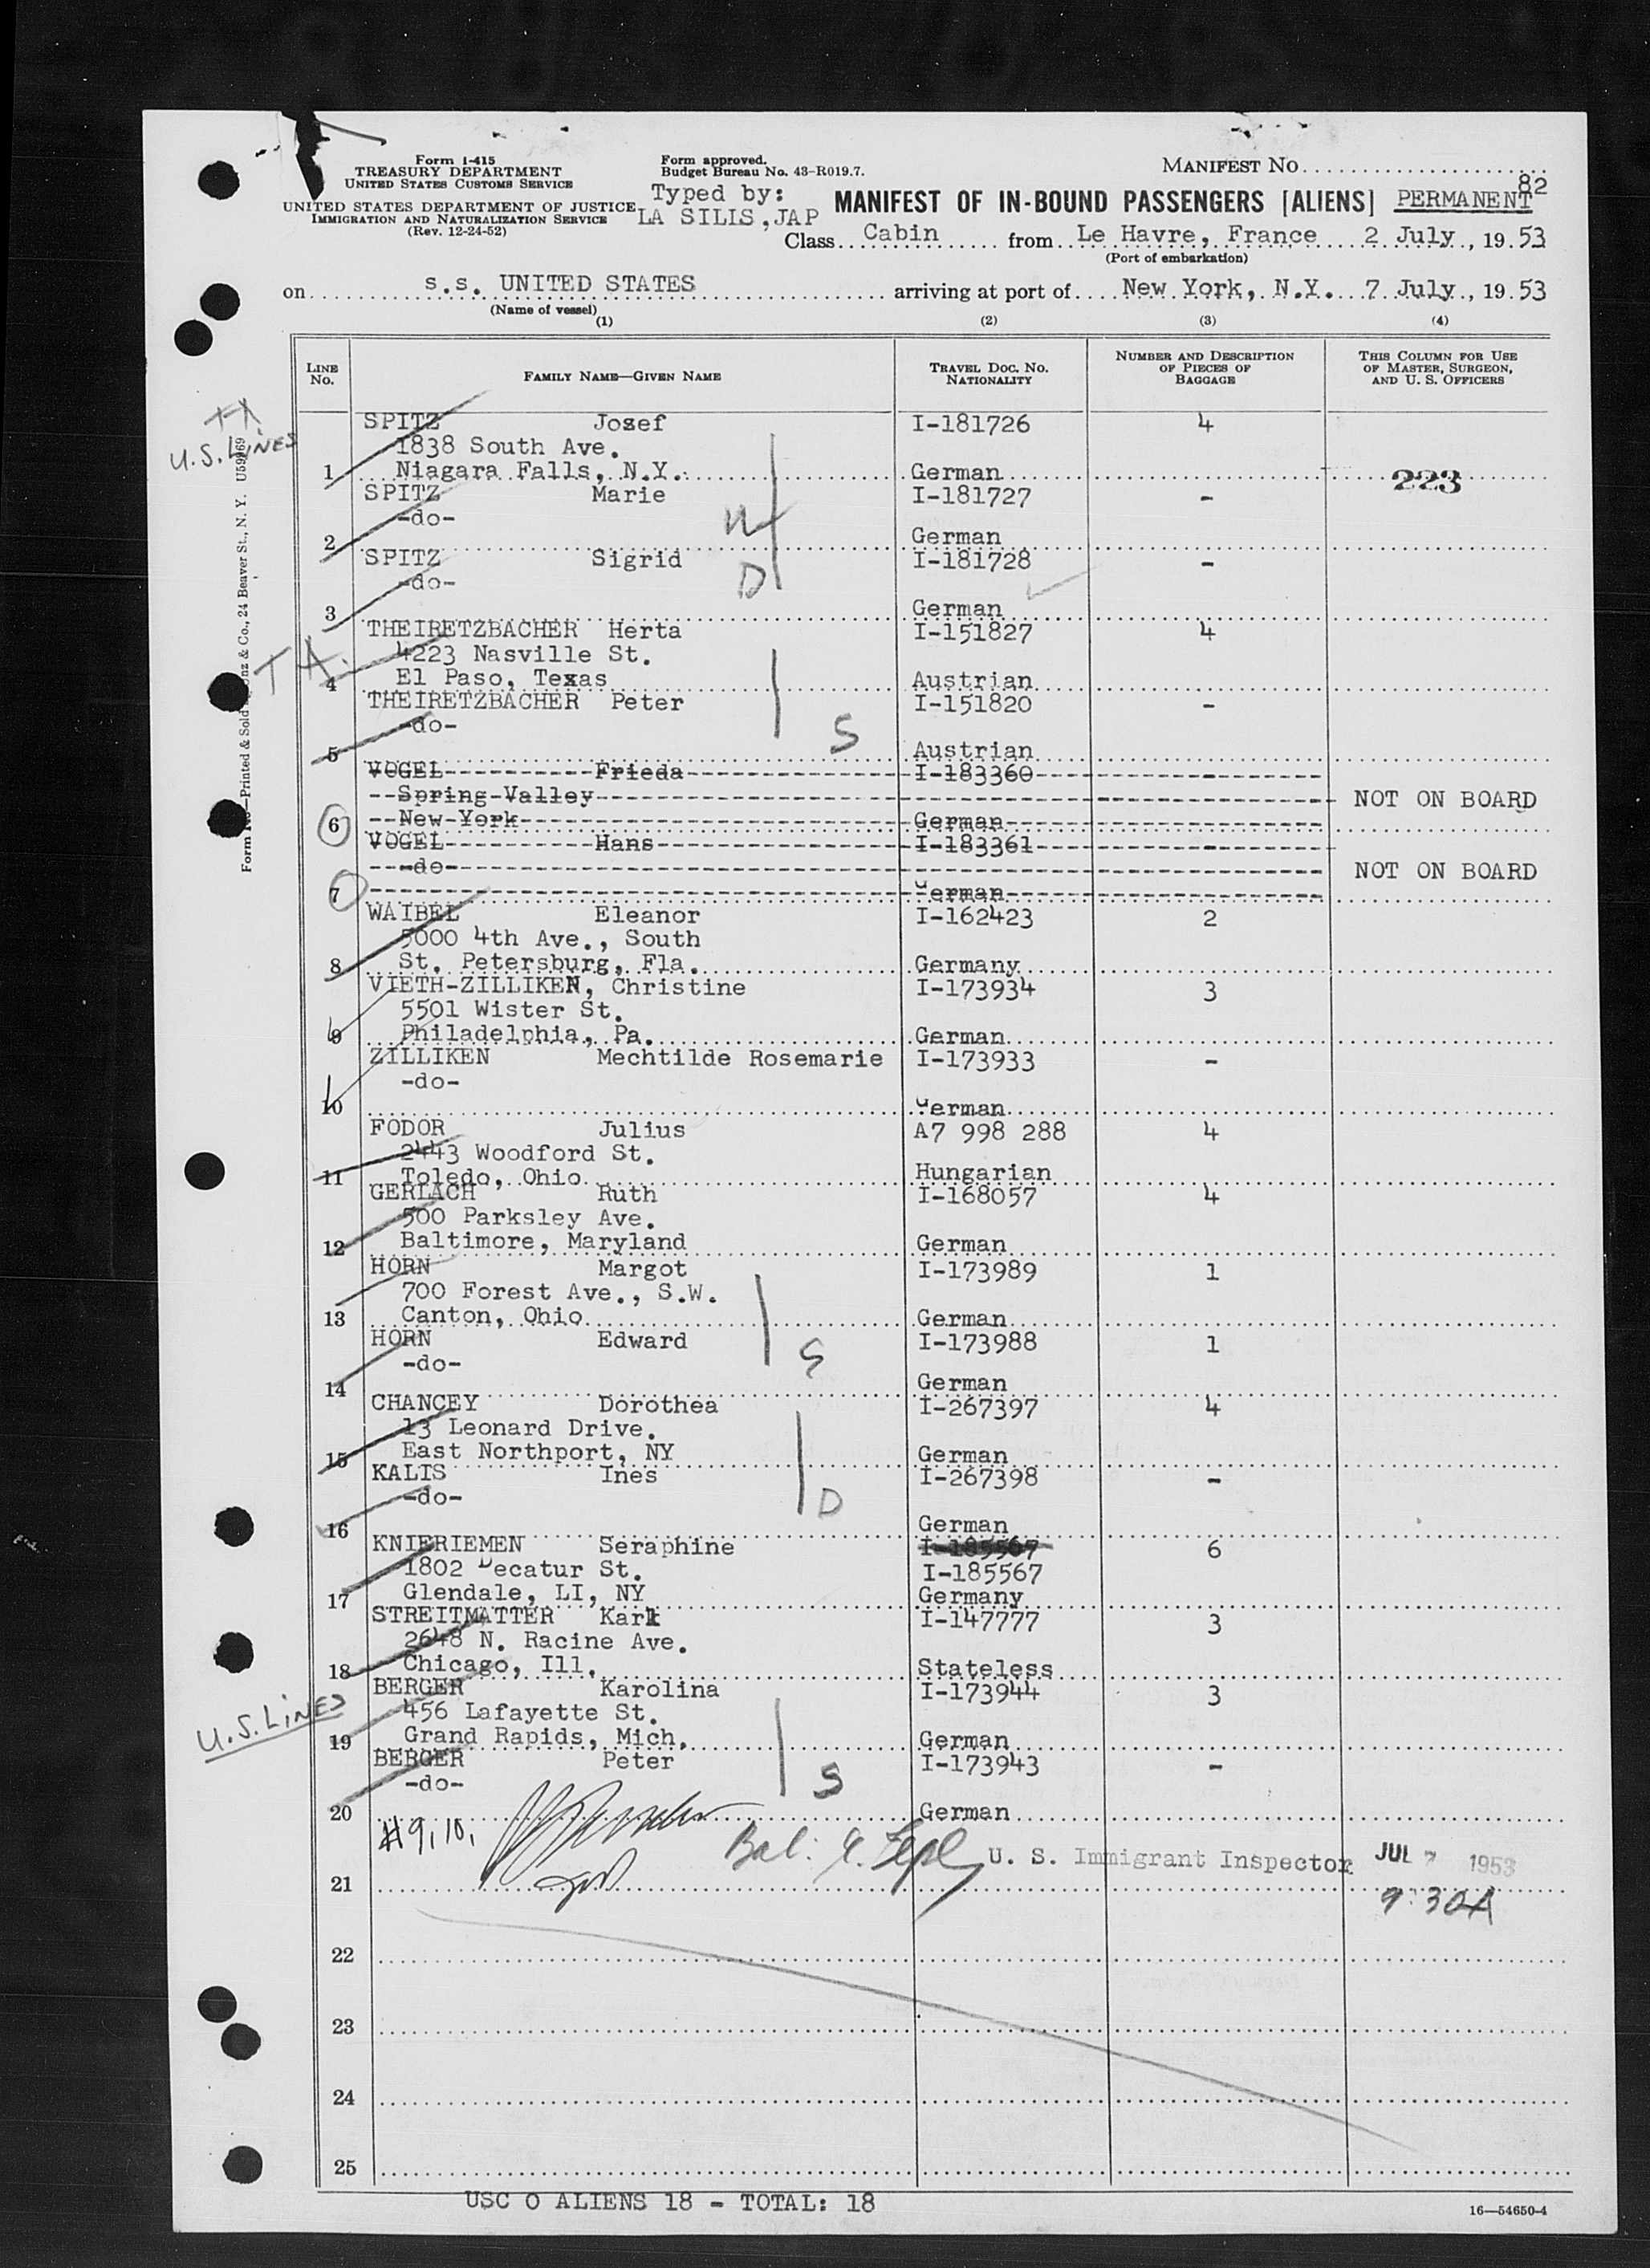 Form I-415
TREASURY DEPARTMENT
UNITED STATES CUSTOMS SERVICE
UNITED STATES DEPARTMENT OF JUSTICE
IMMIGRATION AND NATURALIZATION SERVICE
(Rev. 12-24-52)
Form approved.
Budget Bureau No. 43-R019.7.
Typed by:
LA SILIS, JAP
MANIFEST NO.
82
MANIFEST OF IN-BOUND PASSENGERS [ALIENS] PERMANENT
Class Cabin from Le Havre, France 2 July, 19 53
(Port of embarkation)
on s.s. UNITED STATES arriving at port of New York, N.Y. 7 July, 19 53
(Name of vessel)
(1) (2) (3) (4)
LINE NO. FAMILY NAME—GIVEN NAME TRAVEL DOC. NO. NATIONALITY NUMBER AND DESCRIPTION OF PIECES OF BAGGAGE THIS COLUMN FOR USE OF MASTER, SURGEON, AND U. S. OFFICERS
U.S. LINES
SPITZ Josef I-181726 4
1838 South Ave.
1 Niagara Falls, N.Y. German 223
SPITZ Marie I-181727 -
-do-
2 German
SPITZ Sigrid I-181728 -
-do- D
3 German
THEIRETZBACHER Herta I-151827 4
4223 Nasville St.
T A.
4 El Paso, Texas Austrian
THEIRETZBACHER Peter I-151820 -
-do- S
5 Austrian
VOGEL Frieda I-183360 -
Spring Valley NOT ON BOARD
6 New York German
VOGEL Hans I-183361 -
-do- NOT ON BOARD
7 German
WAIBEL Eleanor I-162423 2
5000 4th Ave., South
8 St. Petersburg, Fla. Germany
VIETH-ZILLIKEN, Christine I-173934 3
5501 Wister St.
9 Philadelphia, Pa. German
ZILLIKEN Mechtilde Rosemarie I-173933 -
-do-
10 German
FODOR Julius A7 998 288 4
2443 Woodford St.
11 Toledo, Ohio Hungarian
GERLACH Ruth I-168057 4
500 Parksley Ave.
12 Baltimore, Maryland German
HORN Margot I-173989 1
700 Forest Ave., S.W.
13 Canton, Ohio German
HORN Edward I-173988 1
-do- S
14 German
CHANCEY Dorothea I-267397 4
13 Leonard Drive.
15 East Northport, NY German
KALIS Ines I-267398 -
-do- D
16 German
KNIERIEMEN Seraphine I-185567 6
1802 Decatur St. I-185567
17 Glendale, LI, NY Germany
STREITMATTER Karl I-147777 3
2648 N. Racine Ave.
18 Chicago, Ill. Stateless
BERGER Karolina I-173944 3
U.S. LINES
456 Lafayette St.
19 Grand Rapids, Mich. German
BERGER Peter I-173943 -
-do- S
20 German
#9, 10,
Bal:
U. S. Immigrant Inspector JUL 7 1953
21
9:30A
22
23
24
25
USC 0 ALIENS 18 - TOTAL: 18
16—54650-4
24 Beaver St., N. Y. U59969